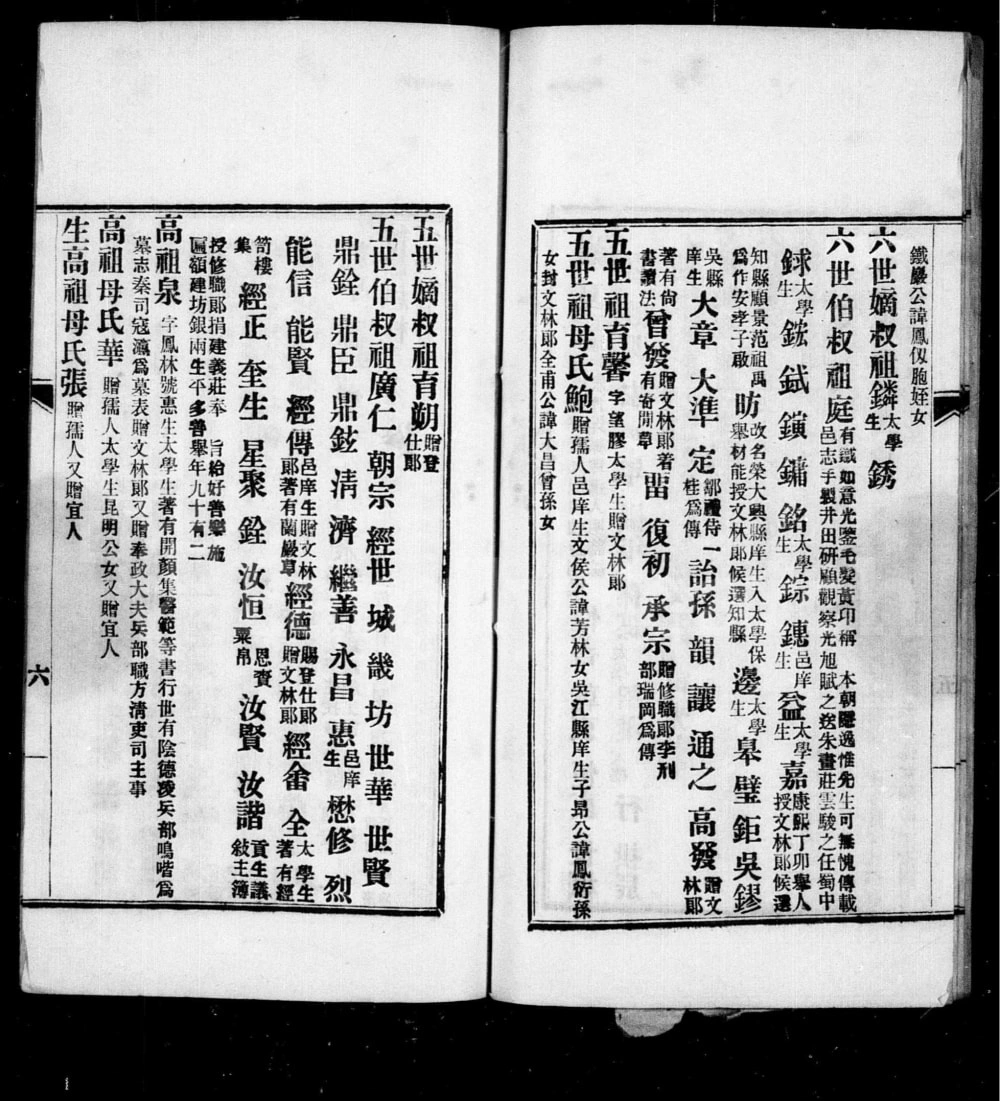 鐵巖公諱鳳似胞姪女
六世嫡叔祖鏻太學生 銹
六世伯叔祖庭有誠如意光鑒毛髮黃印稱 本朝隱逸惟先生可無愧傳載邑志手製井出硏顧觀察光旭賦之送朱畫莊雲駿之任蜀中
銶太學生 鋐 鋱 鎮 鏞 銘太學生 錝 鏸邑庠生 益太學生 嘉康熙丁卯舉人授文林郎候選
知縣顧景范祖禹爲作安孝子啟 昉改名榮大興縣庠生入太學保舉材能授文林郎候選知縣 邊太學生 皋 璧 鉅 吳鏐
吳縣庠生 大章 大準 定鄒禮侍一桂爲傳 詒孫 韻 讓 通之 高發贈文林郎
著有尙書讀法 曾發贈文林郎著有寄閒草 畱 復初 承宗贈修職郎李刑部瑞岡爲傳
五世祖育馨字望膠太學生贈文林郎
五世祖母氏鮑贈孺人邑庠生文侯公諱芳林女吳江縣庠生子昂公諱鳳衍孫女封文林郎全甫公諱大昌曾孫女
五世嫡叔祖育朔贈登仕郎
五世伯叔祖廣仁 朝宗 經世 城 畿 坊 世華 世賢
鼎銓 鼎臣 鼎鉉 淸 濟 繼善 永昌 惠邑庠生 懋修 烈
能信 能賢 經傳邑庠生贈文林郎著有蘭巖草 經德賜登仕郎贈文林郎 經畬 全太學生著有經
笥樓集 經正 奎生 星聚 銓 汝恒恩賚粟帛 汝賢 汝諧貢生議敍主簿
授修職郎捐建義莊奉 旨給好善樂施匾額建坊銀兩生平多善舉年九十有二
高祖泉字鳳林號惠生太學生著有開顏集醫範等書行世有陰德淩兵部鳴喈爲墓志秦司寇瀛爲墓表贈文林郎又贈奉政大夫兵部職方淸吏司主事
高祖母氏華贈孺人太學生昆明公女又贈宜人
生高祖母氏張贈孺人又贈宜人
六